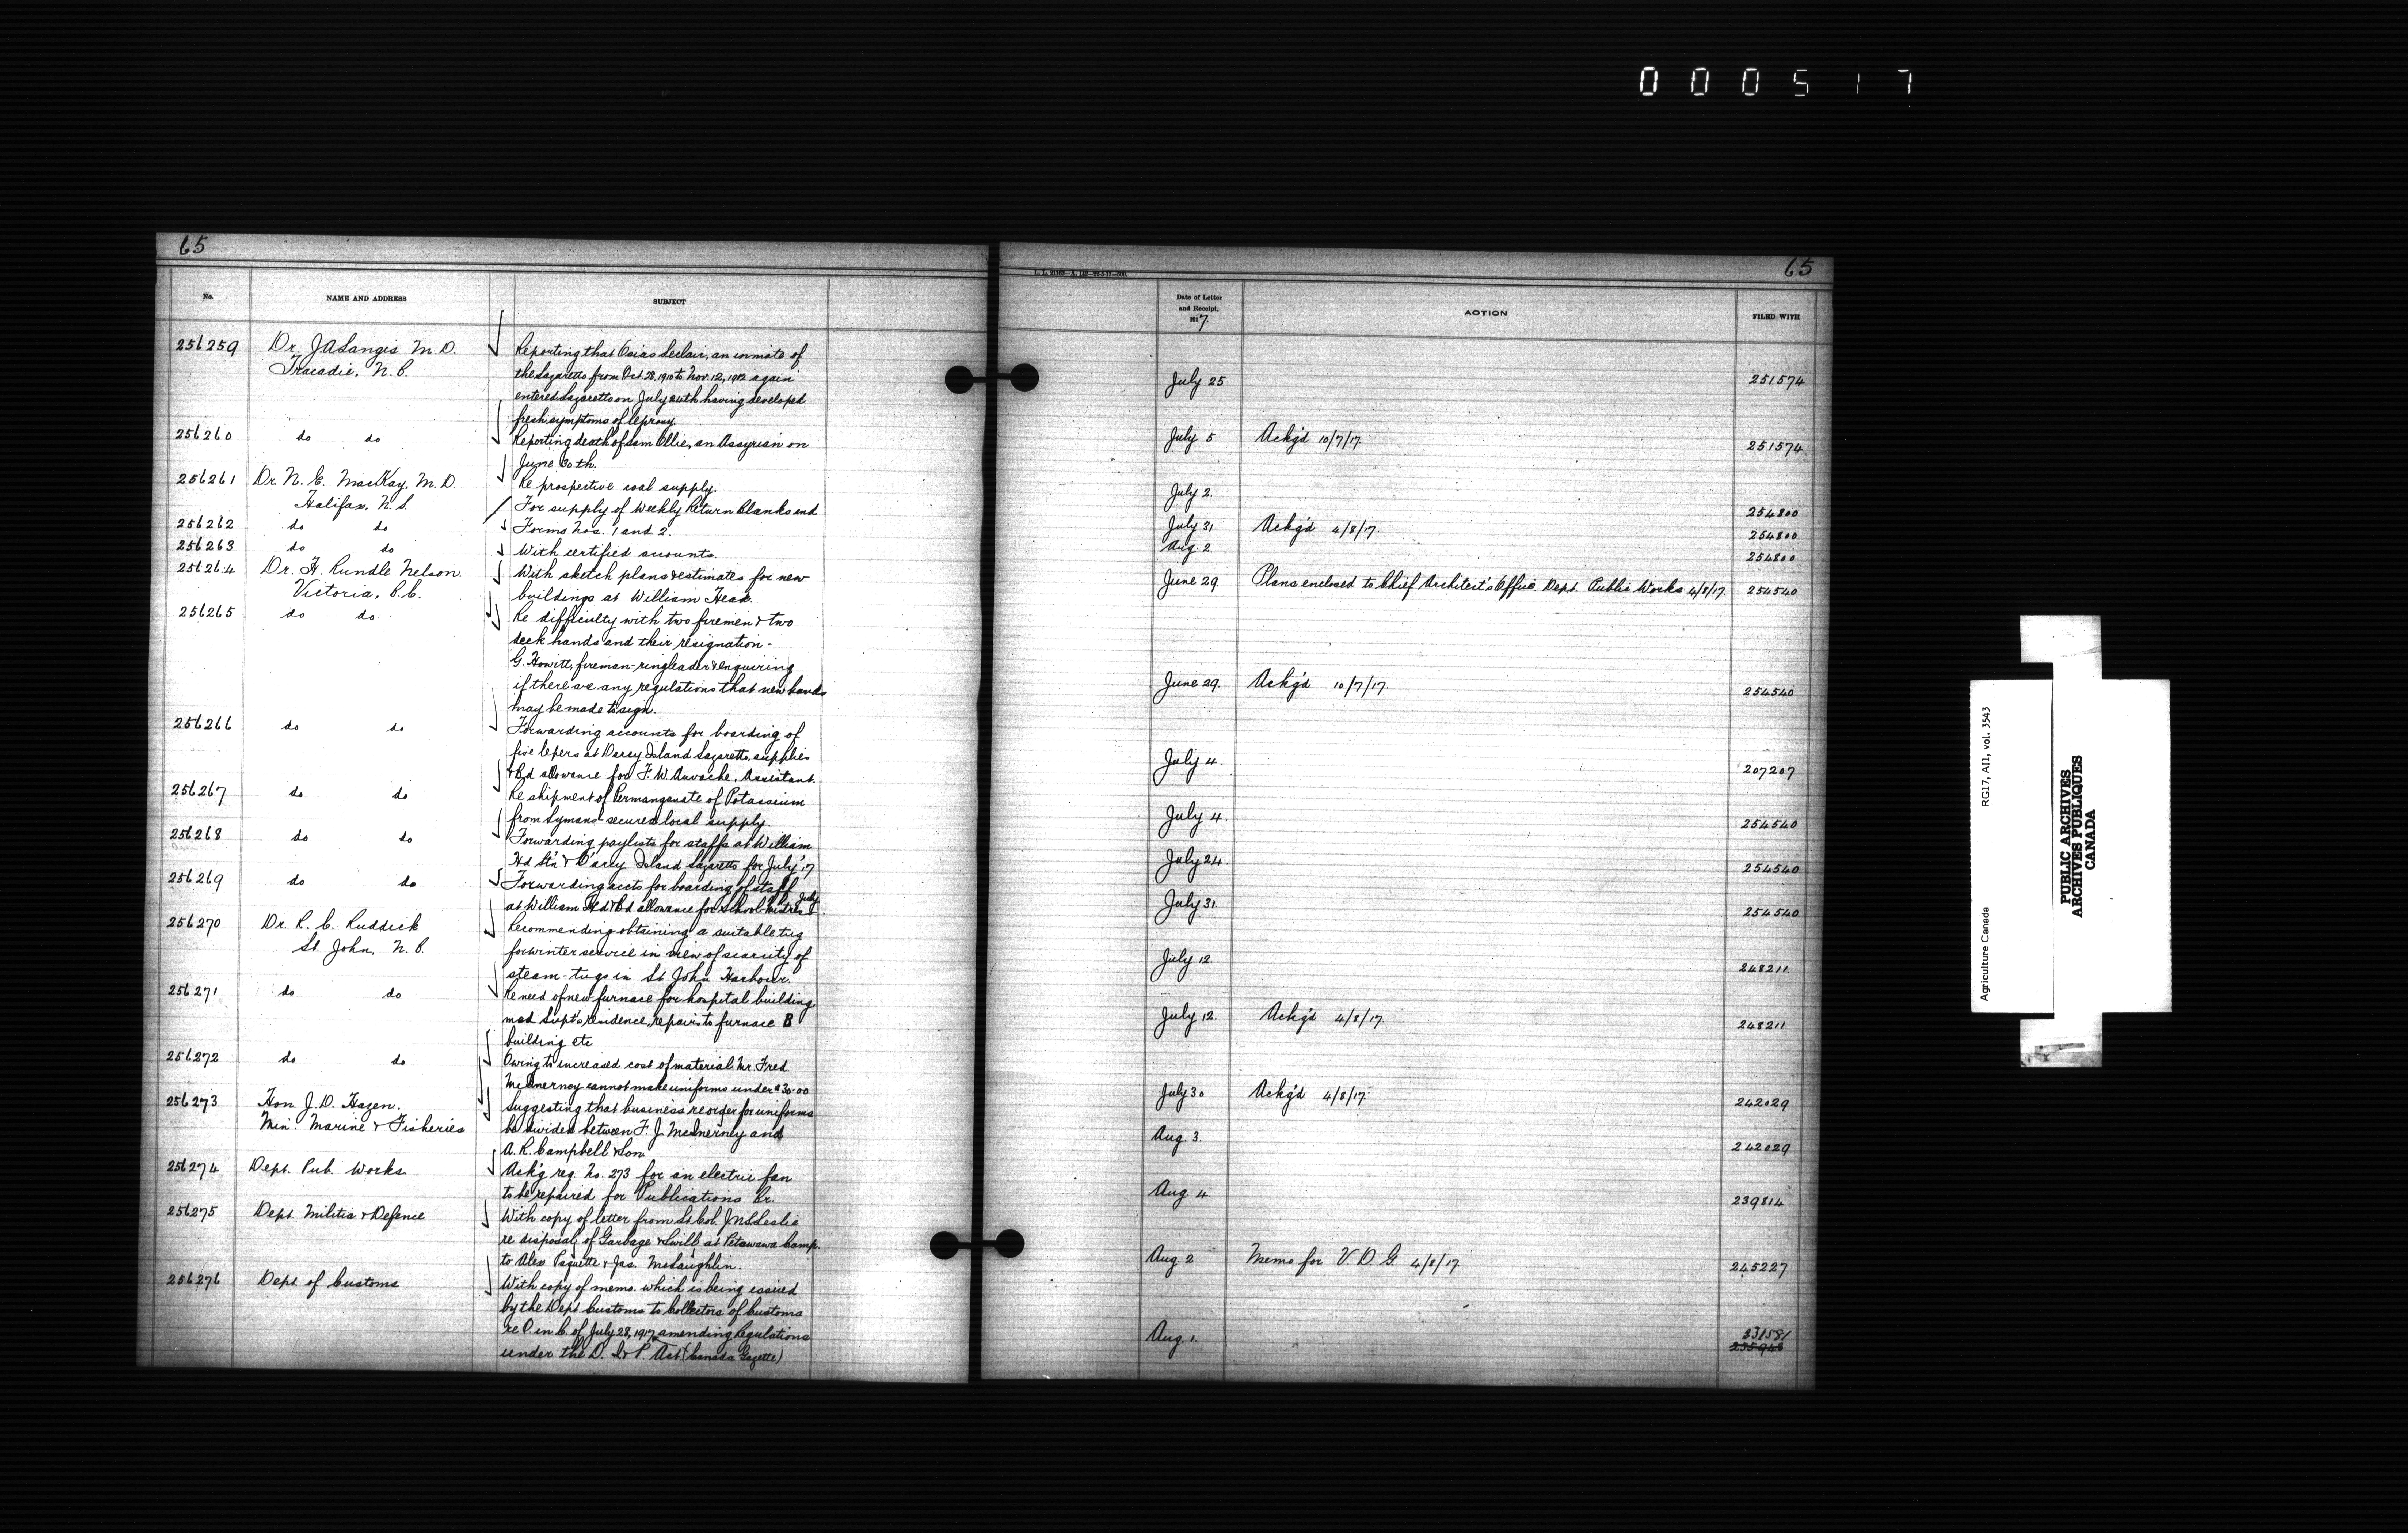 000517
65
No.
NAME AND ADDRESS
SUBJECT
256259
Dr. J A Langis M.D.
Tracadie, N.B.
Reporting that Osias Leclair, an inmate of
the Lazaretto from Oct. 28, 1910 to Nov. 12, 1912 again
entered Lazaretto on July 24th having developed
fresh symptoms of leprosy.
256260
do do
Reporting death of Sam Ollie, an Assyrian on
June 30th.
256261
Dr. N. E. MacKay, M.D.
Halifax, N.S.
Re prospective coal supply.
256262
do do
For supply of Weekly Return Blanks and
Forms Nos. 1 and 2.
256263
do do
With certified accounts.
256264
Dr. H. Rundle Nelson
Victoria, B.C.
With sketch plans & estimates for new
buildings at William Head.
256265
do do
Re difficulty with two firemen & two
deck hands and their resignation-
G. Howitt, fireman-ringleader & enquiring
if there are any regulations that new hands
may be made to sign.
256266
do do
Forwarding accounts for boarding of
five lepers at Darcy Island Lazaretto, supplies
& Bd allowance for F. W. Assistant.
256267
do do
Re shipment of Permanganate of Potassium
from Lymans-secured local supply.
256268
do do
Forwarding paylists for staffs at William
Hd Stn & D'arcy Island Lazaretto for July '17
256269
do do
Forwarding accts for boarding of staff
at William Hd & Bd allowance for School Mistress July
256270
Dr. R. C. Ruddick
St. John, N.B.
Recommending obtaining a suitable tug
for winter service in view of scarcity of
steam-tugs in St John Harbour.
256271
do do
Re need of new furnace for hospital building
med Supt's residence, repairs to furnace B
building etc
256272
do do
Owing to increased cost of material Mr. Fred
McInerney cannot make uniforms under $30.00
256273
Hon. J. D. Hazen.
Min. Marine & Fisheries
Suggesting that business re order for uniforms
be divided between F. J. McInerney and
A. R. Campbell & Son
256274
Dept. Pub. Works
Ack'g req. No. 273 for an electric fan
to be repaired for Publications Br.
256275
Dept Militia & Defence
With copy of letter from Lt Col. Leslie
re disposal of Garbage & Swill at Petawawa Camp
to Alex Paquette & Jas. McLaughlin.
256276
Dept of Customs
With copy of memo. which is being issued
by the Dept Customs to Collectors of Customs
re O in C of July 28, 1917 amending Regulations
under the D. I & P. Act (Canada Gazette)
65
Date of Letter
and Receipt,
1917.
ACTION
FILED WITH
July 25
251574
July 5
Ackg'd 10/7/17
251574
July 2.
254800
July 31
Ackg'd 4/8/17.
254800
Aug. 2
254800
June 29.
Plans enclosed to Chief Architect's Office, Dept. Public Works 4/8/17
254540
June 29.
Ackg'd 10/7/17.
254540
July 4.
207207
July 4
254540
July 24.
254540
July 31
254540
July 12
248211
July 12.
Ackg'd 4/8/17.
248211
July 30
Ackg'd 4/8/17
242029
Aug. 3.
242029
Aug 4
239814
Aug. 2
Memo for V. D. G. 4/8/17
245227
Aug. 1.
RG17, A11, vol. 3543
Agriculture Canada
PUBLIC ARCHIVES
ARCHIVES PUBLIQUES
CANADA